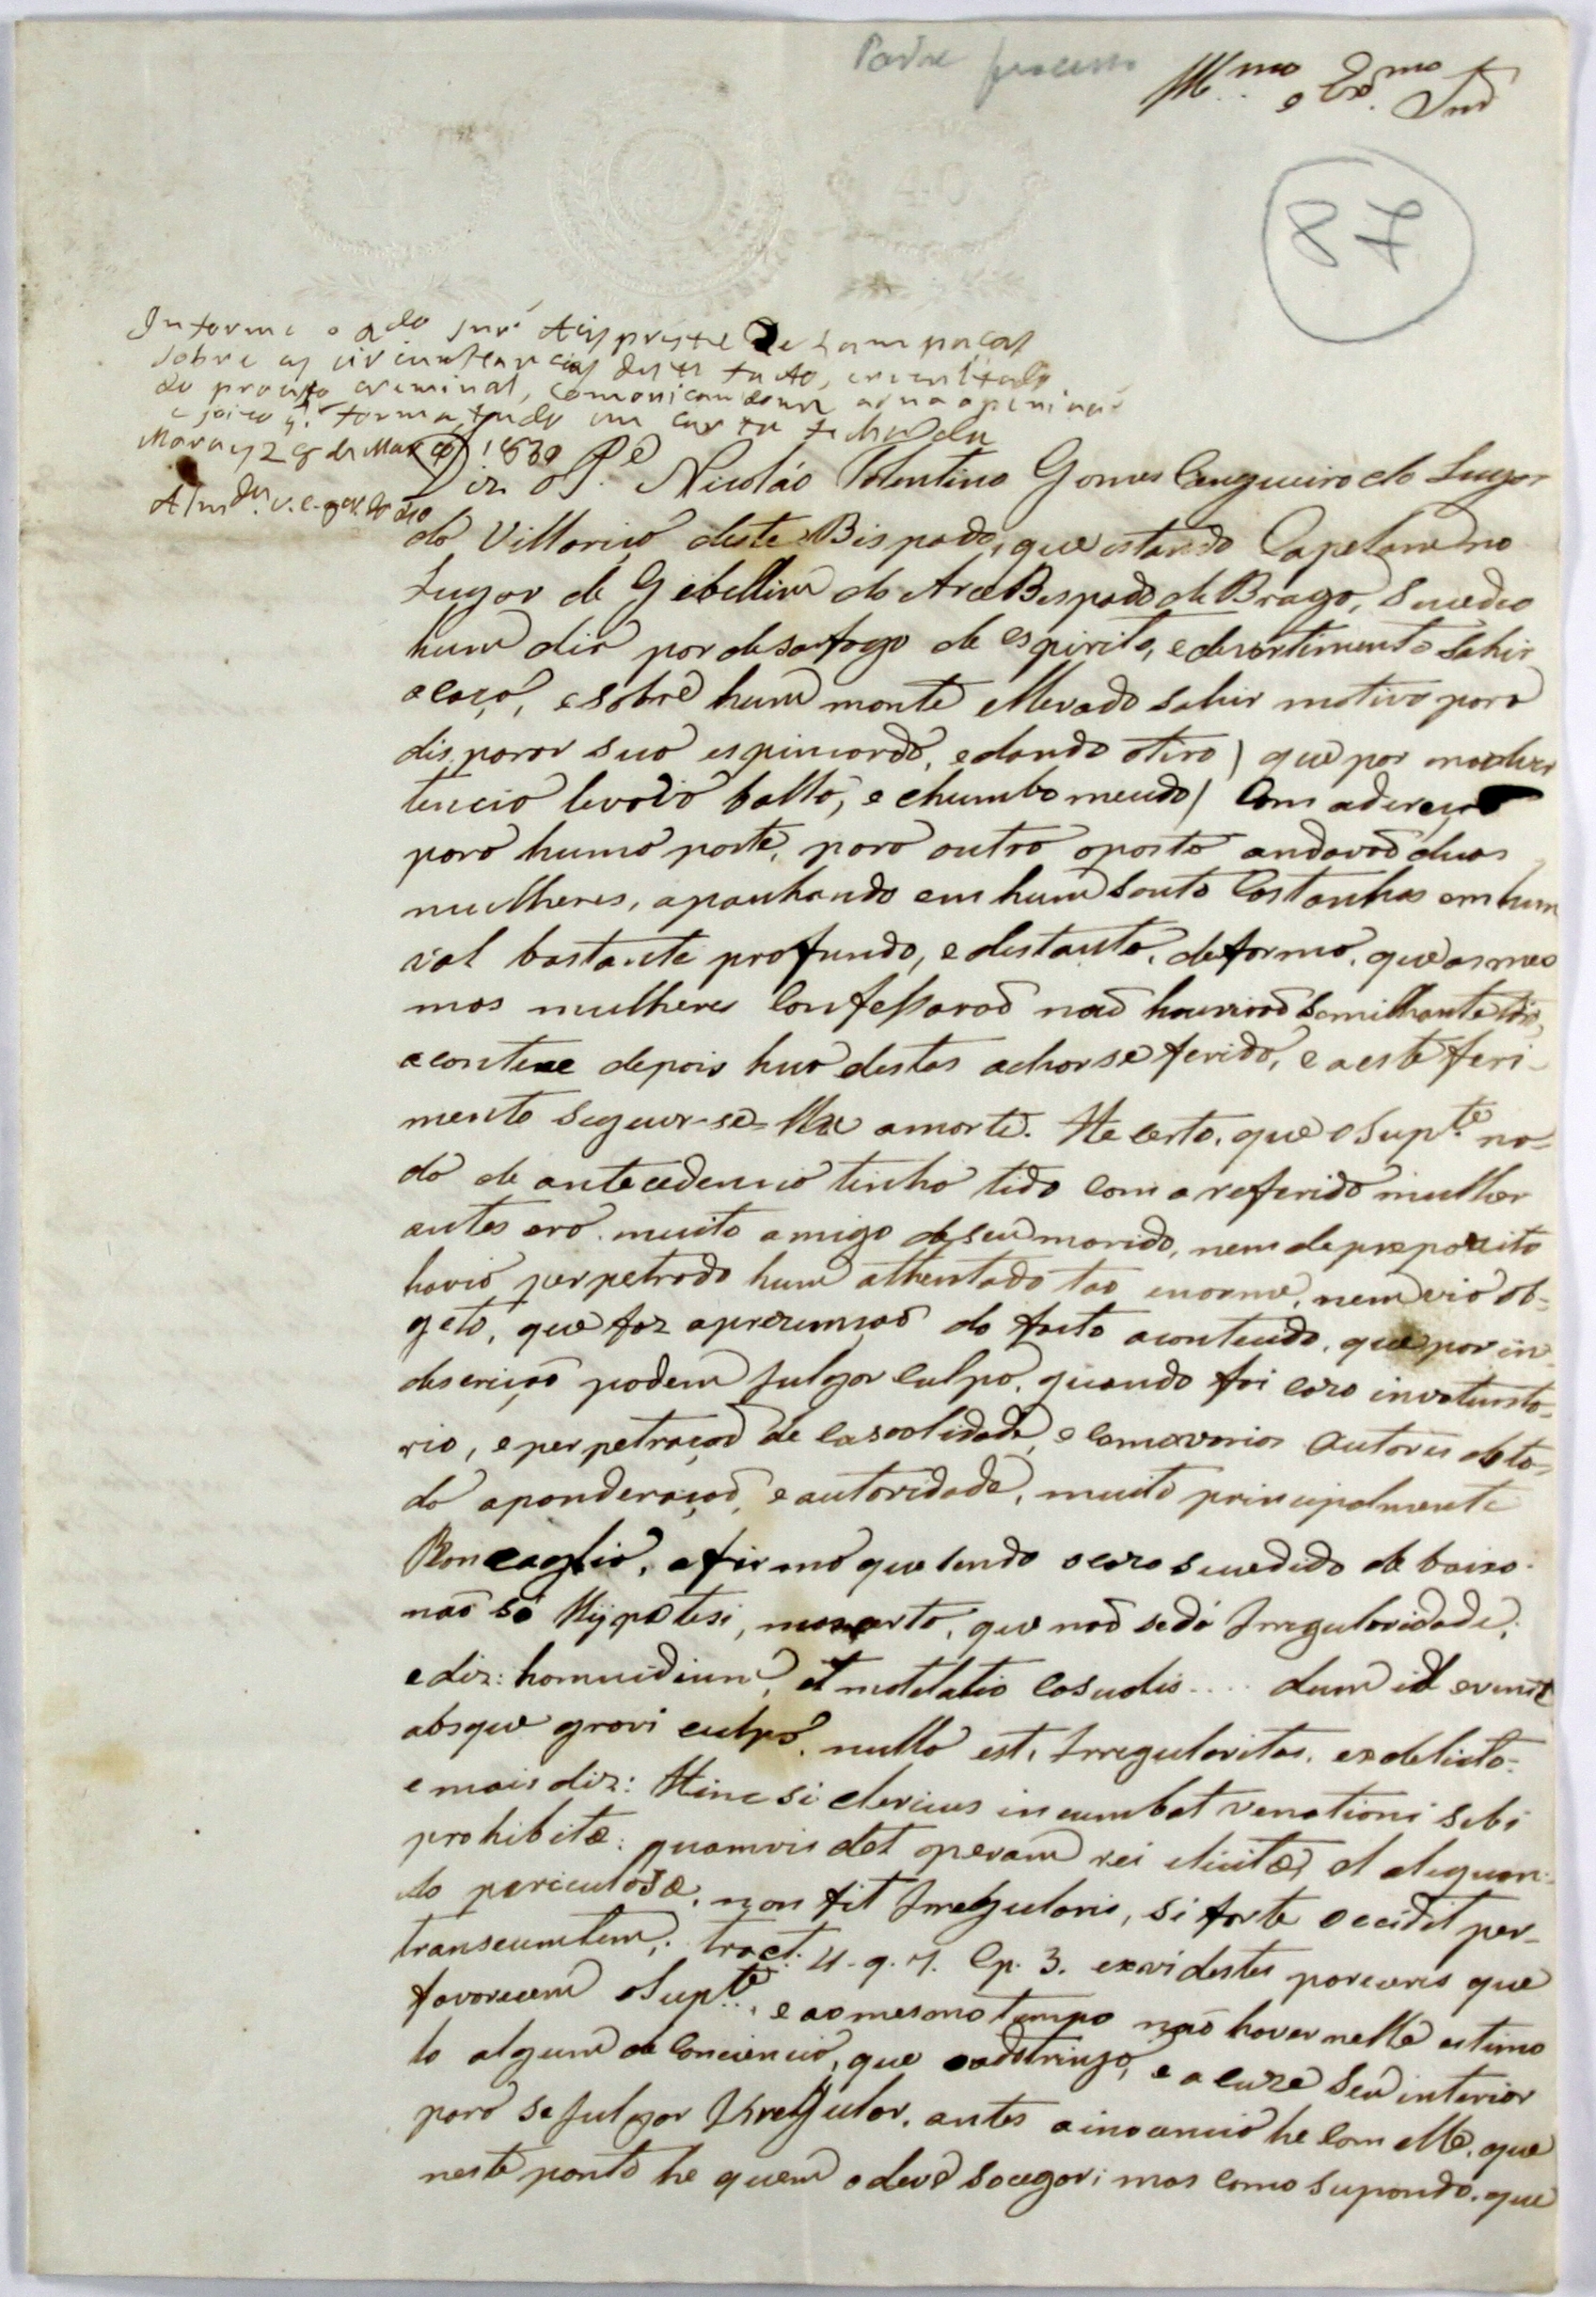 Padre processo
Ill.mo e Ex.mo Snr
87
40
Informe o R.do Snr Arcypreste de Lampaças
sobre as circunstancias deste facto, e rezultado
do processo criminal, comonicandome a sua opinião
e juizo q. forma, tudo em carta fechada
Moraes 28 de Março 1839
Alm.da V. C. gov.dor
Diz o P.e Nicoláo Tolentino Gomes Cangueiro do Lugar
do Villarico deste Bispado, que estando Capelam no
Lugar de Gebellim do ArceBispado de Braga, Sucedeo
hum dia por desafogo de espirito, e devertimento Sahir
a caça, e sobre hum monte ellevado sahir motivo para
disparar sua espincarda, e dando o tiro ) que por inadver
tencia levava balla, e chumbo meudo ) Com adereção
para huma parte, para outra oposta andavaõ duas
mulheres, apanhando em hum Souto Castanhas em hum
val bastante profundo, e distante, de forma, que as mes
mas mulheres Confessaraõ naõ houviraõ Semilhante tiro,
acontece depois hua destas achar se ferida, e a este feri-
mento seguir-se-lhe a morte. He certo, que o Sup.te na-
da de antecedencia tinha tido com a referida mulher
antes era muito amigo de seu marido, nem de preposito
havia perpetrado hum athentado tao enorme, nem vio ob-
geto, que faz a prezumsaõ do facto acontecido, que por in-
descrição podem Julgar Culpa, quando foi cazo involunta-
rio, e perpetraçaõ de casoalidade, e como varios Autores de to-
da aponderaçaõ, e autoridade, muito principalmente
Roncaglia, afirma que sendo o cazo sucedido de baixo
naõ só Hypotesi, mas certo, que naõ se dá Irregularidade,
e diz: homicidium, et motelatio Casualis.... dum id evenit
absque gravi culpa, nulla est, Irregularitas, ex delicto-
e mais diz: Hinc si clericus incumbat venationi sibi
prohibitæ: quamvis det operam rei elicitæ, et aliquan-
do periculosæ, non fit Irregularis, si forte occidit per-
transeumtem, tract. 4. q. 7. Cp. 3. ex vi destes parceres que
favorecem o Sup.te, e ao mesmo tempo naõ haver nelle estimo
lo algum de Conciencia, que o adstringa, e acuze Seu interior
para se Julgar Irregular, antes a inocencia he com elle, que
neste ponto he quem o deve socegar; mas como supondo, que